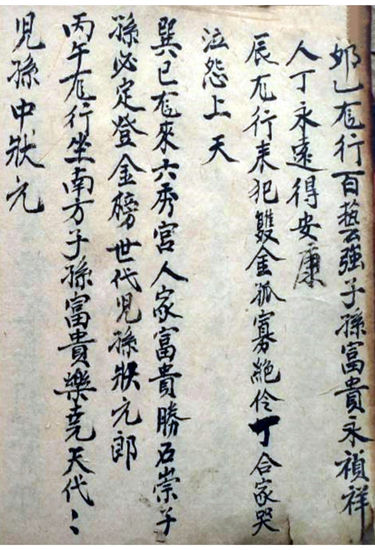 卯乙龙行百芸強子孫富貴永禎祥
人丁永遠得安康
辰龙行来犯雙金孤寡絶伶丁合家哭
泣怨上天
巽巳龙來六秀宮人家富貴勝石崇子
孫必定登金榜世代児孫狀元郎
丙午龙行坐南方子孫富貴樂堯天代〻
児孫中狀元